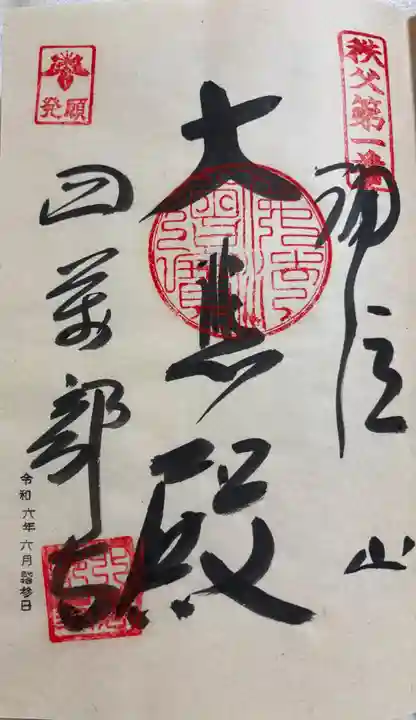 秩父第一番
誦経山
大悲殿
発願
四萬部寺
令和六年六月